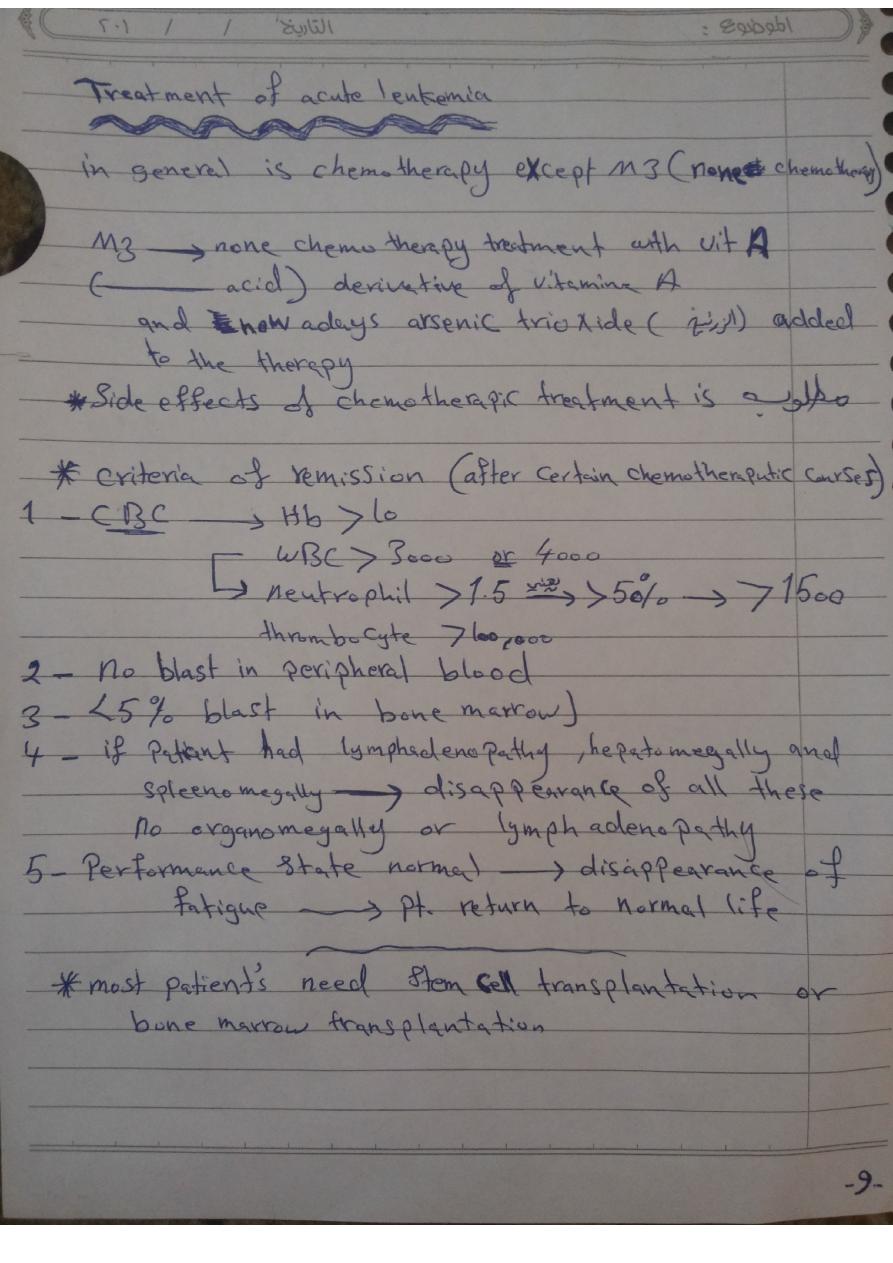 الموضوع : التاريخ: / / ٢٠١
Treatment of acute leukemia
in general is chemotherapy except M3 (none chemotherapy)
M3 → none chemo therapy treatment with vit A
(———— acid) derivative of vitamine A
and now adays arsenic trioxide (الزرنيخ) added
to the therapy
* Side effects of chemotherapic treatment is مطلوب
* criteria of remission (after certain chemotheraputic courses)
1 - CBC → Hb > 10
WBC > 3000 or 4000
neutrophil > 1.5 → > 50% → > 1500
thrombocyte > 100,000
2 - no blast in peripheral blood
3 - < 5% blast in bone marrow)
4 - if patient had lymphadenopathy, hepatomegally and
spleenomegally → disappearance of all these
no organomegally or lymphadenopathy
5 - Performance state normal → disappearance of
fatigue → pt. return to normal life
* most patient's need stem cell transplantation or
bone marrow transplantation
-9-